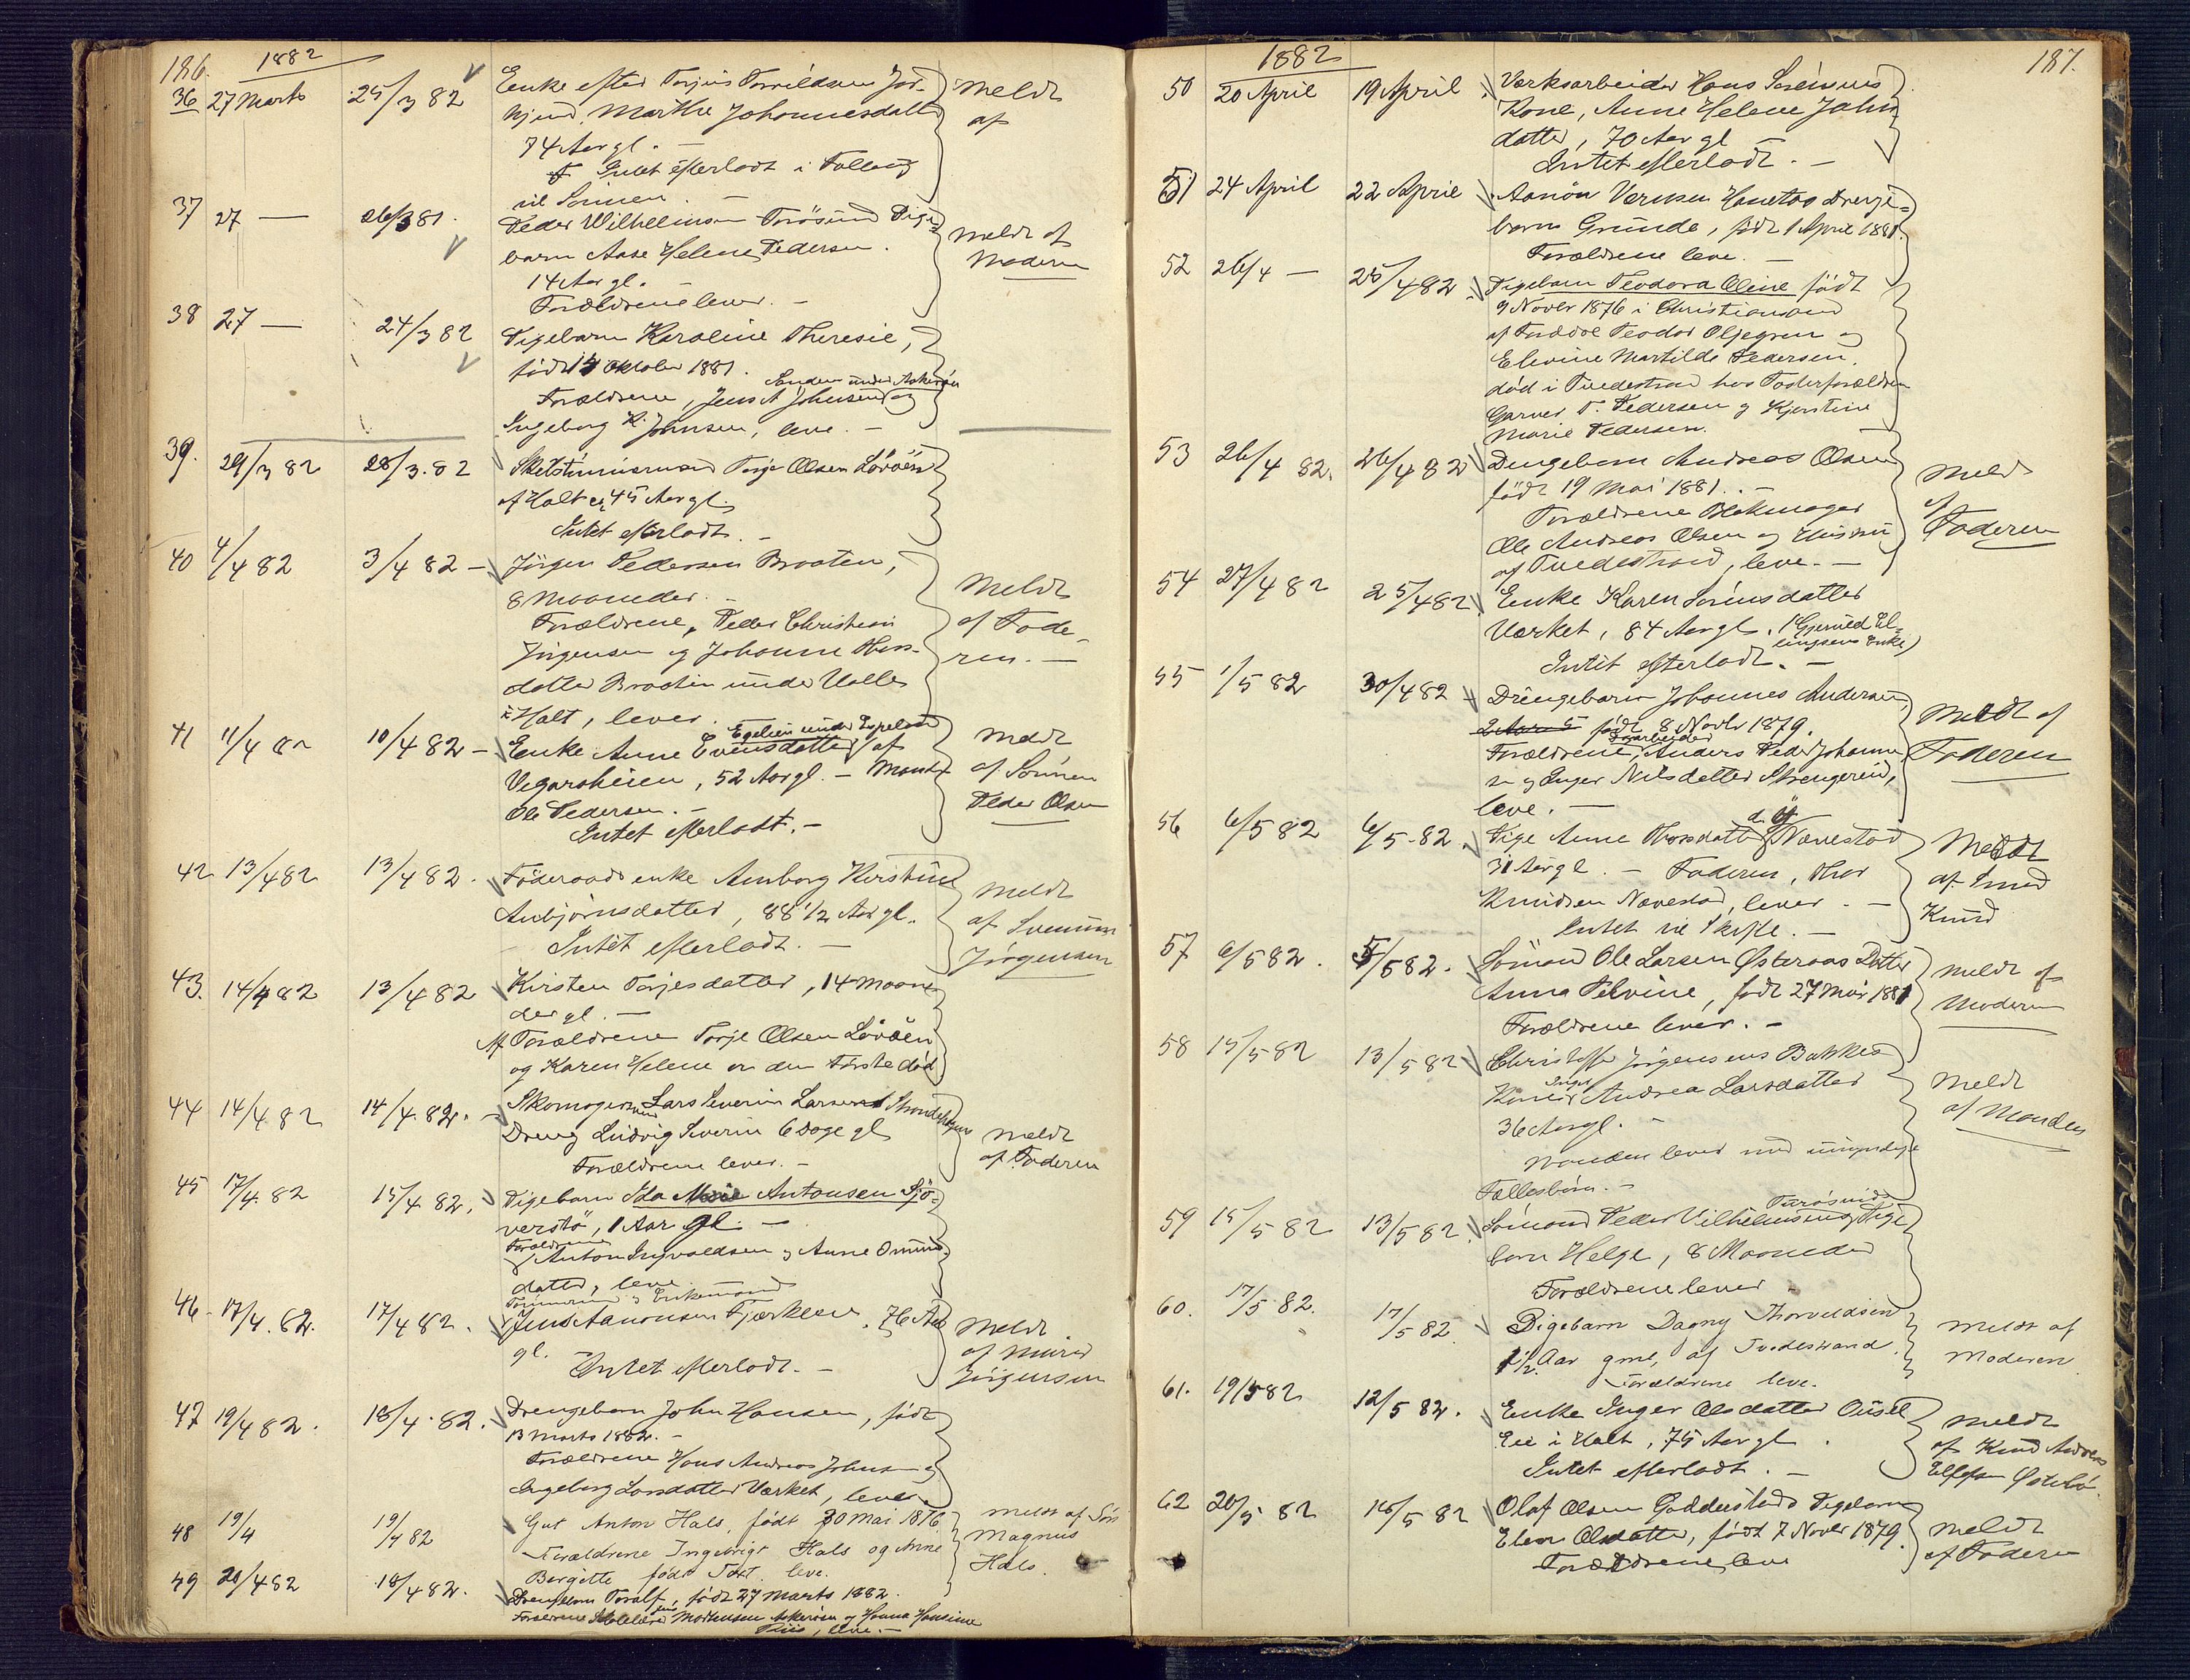 186.
1882
36 27 Marts 25/3 82 Enke efter Torjus
hjerd. Marthe Johannesdatter Meldt
74 Aar gl. — af
Intet efterladt i Fællesg
til Sönnen. —
37 27 — 26/3 81. Peder Wilhelmsen Torösund Pige-
barn Aase Helene Pedersen. meldt af
14 Aar gl. — Moderen
Forældrene lever. —
38 27 — 24/3 82 Pigebarn Karoline Theresie,
födt 14 Oktober 1881. Sanden under Askeröen
Forældrene, Jens A Johnsen og
Ingeborg K. Johnsen, leve. —
39. 29/3 82 28/3. 82 Torje Olsen Lövöen
af Holt ca 45 Aar gl.
Intet efterladt. —
40 4/4 82 3/4 82 — Jörgen Pedersen Braaten,
8 Maaneder. — Meldt
Forældrene, Peder Christian af Fade-
Jörgensen og Johanne Hans- ren. —
datter Braaten under Valle
i Holt, lever.
41 11/4 82 10/4 82 — Enke Anne Evensdatter Egelien under af Meldt
Vegarsheien, 52 Aar gl. — Mand af Sönnen
Ole Pedersen. — Peder Olsen
Intet efterladt. —
42 13/4 82 13/4 82. Föderaads enke Amborg Kirstine Meldt
Anbjörnsdatter, 88 1/2 Aar gl. af
Intet efterladt. — Jörgensen
43. 14/4 82 13/4 82 Kirsten Torjesdatter, 14 Maane
der gl. —
Af Forældrene Torje Olsen Lövöen
og Karen Helene er den Förste död.
44 14/4 82 14/4. 82. — Skomager Lars Severin Larsens
Dreng Ludvig Severin 6 Dage gl Meldt
Forældrene lever. — af Faderen
45 17/4. 82 15/4 82. Pigebarn Ida Marie Antonsen Sjö-
verstö, 1 Aar gl. —
Forældrene
Anton Ingvaldsen og Anne Omunds-
datter, leve.
46. 17/4. 82. 17/4 82. Tömmermand og Enkemand
Jens Aanonsen Fjærkleiv, 76 Aar Meldt
gl. af Murer
Intet efterladt. — Jörgensen
47 19/4 82. 18/4. 82. Drengebarn John Hansen, födt
13 Marts 1882. —
Forældrene Hans Andreas Johnsen og
Ingeborg Larsdatter Værket, lever.
48 19/4 19/4 82 Gut Anton Hals, født 30 Mai 1876 meldt af
Forældrene Ingebrigt Hals og Anne Magnus
Bergitte født Toft. leve. Hals.
49 20/4 82 18/4 82. Drengebarn Toralf, födt 27 Marts 1882.
Forældrene Mortensen Askeröen og Hanna Hansine
Friis, leve. —
1882
187.
50 20 April 19 April Værksarbeider Hans Sörensens
Kone, Anne Helene Jahn
datter, 70 Aar gl —
Intet efterladt. —
51 24 April 22 April Aanön Drenge-
barn Gunde, födt 1 April 1881.
Forældrene leve. —
52 26/4 — 25/4 82 Pigebarn Teodora Oline födt
9 Novbr 1876 i Christiansand
af Forældre Teodor Oljegren og
Elevine Martilde Pedersen.
död i Tvedestrand hos Fosterforældre
Garver T. Pedersen og Kjerstine
Marie Pedersen.
53 26/4 82. 26/4 82 Drengebarn Andreas Olsen Meldt
födt 19 Mai 1881. — af
Forældrene Blokmager Faderen
Ole Andreas Olsen og Hustru
af Tvedestrand, leve. —
54 27/4 82 25/4 82 Enke Karen Sörensdatter
Værket, 84 Aar gl. (Gjeruld El-
lingsens Enke)
Intet efterladt. —
55 1/5 82 30/4 82 Drengebarn Johannes Andersen
födt 8 Novbr 1879. Meldt af
Forældrene, Anders Peder Johanne Faderen
n og Inger Nilsdatter Strengereid,
leve. —
56 6/5 82 6/5. 82. Pige Anne Thorsdatter d. y. Nævestad
31 Aar gl. — Faderen, Thor Meldt
Knudsen Nævestad, lever. — af Smed
Intet til Skifte. — Knud
57 6/5 82. 5/5 82. Sömand Ole Larsen Østeraas Datter
Anna Pelvine, födt 27 Mai 1881 meldt af
Forældrene lever. — Moderen
58 15/5 82 13/5 82 Christoffer Jörgensens Bakkes
Kone Inger Andrea Larsdatter Meldt
36 Aar gl. — af Manden
Manden lever med umyndige
Fællesbörn. —
59 15/5 82 13/5 82 Sömand Peder Vilhelmsens Torösund Pige
barn Helge, 8 Maaneder
Forældrene lever
60. 17/5 82. 17/5 82. Pigebarn Dagny Thorvaldsen
1 1/2 Aar gml, af Tvedestrand. meldt af
Forældrene leve. Moderen
61. 19/5 82 12/5 82. Enke Inger Olsdatter
Eie i Holt, 75 Aar gl. Meldt
Intet efterladt. — af Knud
62 20/5 82 16/5 82 Olaf Olsen Goderstads Pigebarn
Elen Olsdatter, födt 7 Novbr 1879. Meldt
Forældrene leve af Faderen